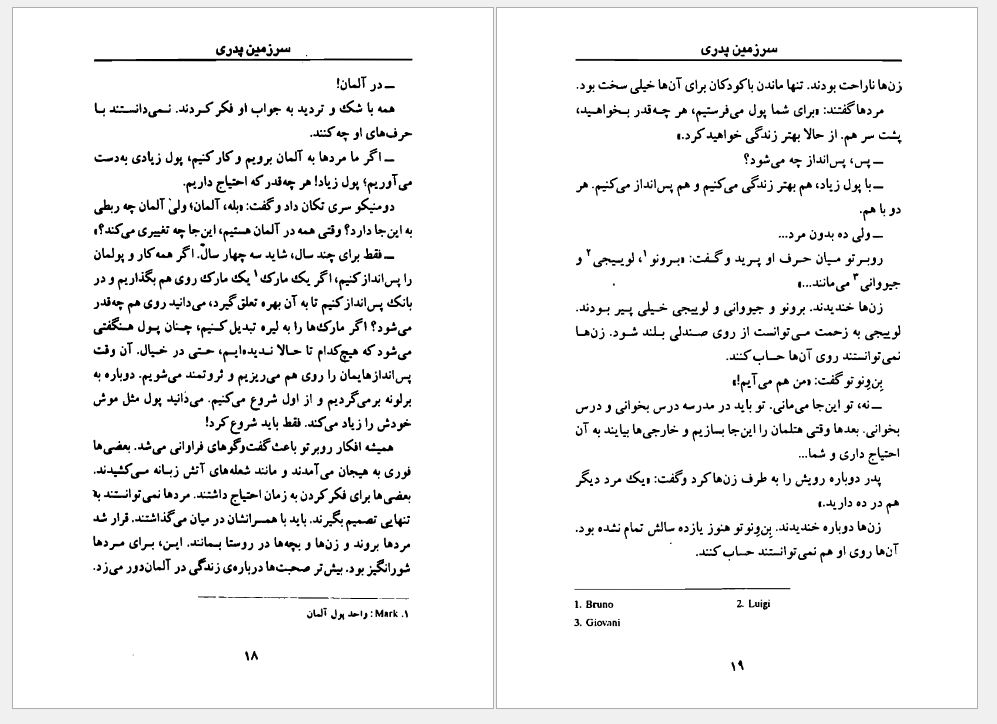 سرزمین پدری
ــ در آلمان!
همه با شک و تردید به جواب او فکر کردند. نمی‌دانستند با
حرف‌های او چه کنند.
ــ اگر ما مردها به آلمان برویم و کار کنیم، پول زیادی به‌دست
می‌آوریم؛ پول زیاد! هر چه‌قدر که احتیاج داریم.
دومنیکو سری تکان داد و گفت: «بله، آلمان؛ ولی آلمان چه ربطی
به این‌جا دارد؟ وقتی همه در آلمان هستیم، این‌جا چه تغییری می‌کند؟»
ــ فقط برای چند سال، شاید سه چهار سال. اگر همه کار و پولمان
را پس‌انداز کنیم، اگر یک مارک۱ یک مارک روی هم بگذاریم و در
بانک پس‌انداز کنیم تا به آن بهره تعلق گیرد، می‌دانید روی هم چه‌قدر
می‌شود؟ اگر مارک‌ها را به لیره تبدیل کنیم، چنان پول هنگفتی
می‌شود که هیچ‌کدام تا حالا ندیده‌ایم، حتی در خیال. آن وقت
پس‌اندازهایمان را روی هم می‌ریزیم و ثروتمند می‌شویم. دوباره به
برلونه برمی‌گردیم و از اول شروع می‌کنیم. می‌دانید پول مثل موش
خودش را زیاد می‌کند. فقط باید شروع کرد!
همیشه افکار روبرتو باعث گفت‌وگوهای فراوانی می‌شد. بعضی‌ها
فوری به هیجان می‌آمدند و مانند شعله‌های آتش زبانه می‌کشیدند.
بعضی‌ها برای فکر کردن به زمان احتیاج داشتند. مردها نمی‌توانستند به
تنهایی تصمیم بگیرند. باید با همسرانشان در میان می‌گذاشتند. قرار شد
مردها بروند و زن‌ها و بچه‌ها در روستا بمانند. این، برای مردها
شورانگیز بود. بیش‌تر صحبت‌ها درباره‌ی زندگی در آلمان دور می‌زد.
۱. Mark: واحد پول آلمان
۱۸
سرزمین پدری
زن‌ها ناراحت بودند. تنها ماندن با کودکان برای آن‌ها خیلی سخت بود.
مردها گفتند: «برای شما پول می‌فرستیم، هر چه‌قدر بخواهید،
پشت سر هم. از حالا بهتر زندگی خواهید کرد.»
ــ پس، پس‌انداز چه می‌شود؟
ــ با پول زیاد، هم بهتر زندگی می‌کنیم و هم پس‌انداز می‌کنیم. هر
دو با هم.
ــ ولی ده بدون مرد...
روبرتو میان حرف او پرید و گفت: «برونو۱، لوییجی۲ و
جیووانی۳ می‌مانند...»
زن‌ها خندیدند. برونو و جیووانی و لوییجی خیلی پیر بودند.
لوییجی به زحمت می‌توانست از روی صندلی بلند شود. زن‌ها
نمی‌توانستند روی آن‌ها حساب کنند.
بِن‌وِنوتو گفت: «من هم می‌آیم!»
ــ نه، تو این‌جا می‌مانی. تو باید در مدرسه درس بخوانی و درس
بخوانی. بعدها وقتی هتلمان را این‌جا بسازیم و خارجی‌ها بیایند به آن
احتیاج داری و شما...
پدر دوباره رویش را به طرف زن‌ها کرد و گفت: «یک مرد دیگر
هم در ده دارید.»
زن‌ها دوباره خندیدند. بِن‌وِنوتو هنوز یازده سالش تمام نشده بود.
آن‌ها روی او هم نمی‌توانستند حساب کنند.
1. Bruno 2. Luigi
3. Giovani
۱۹